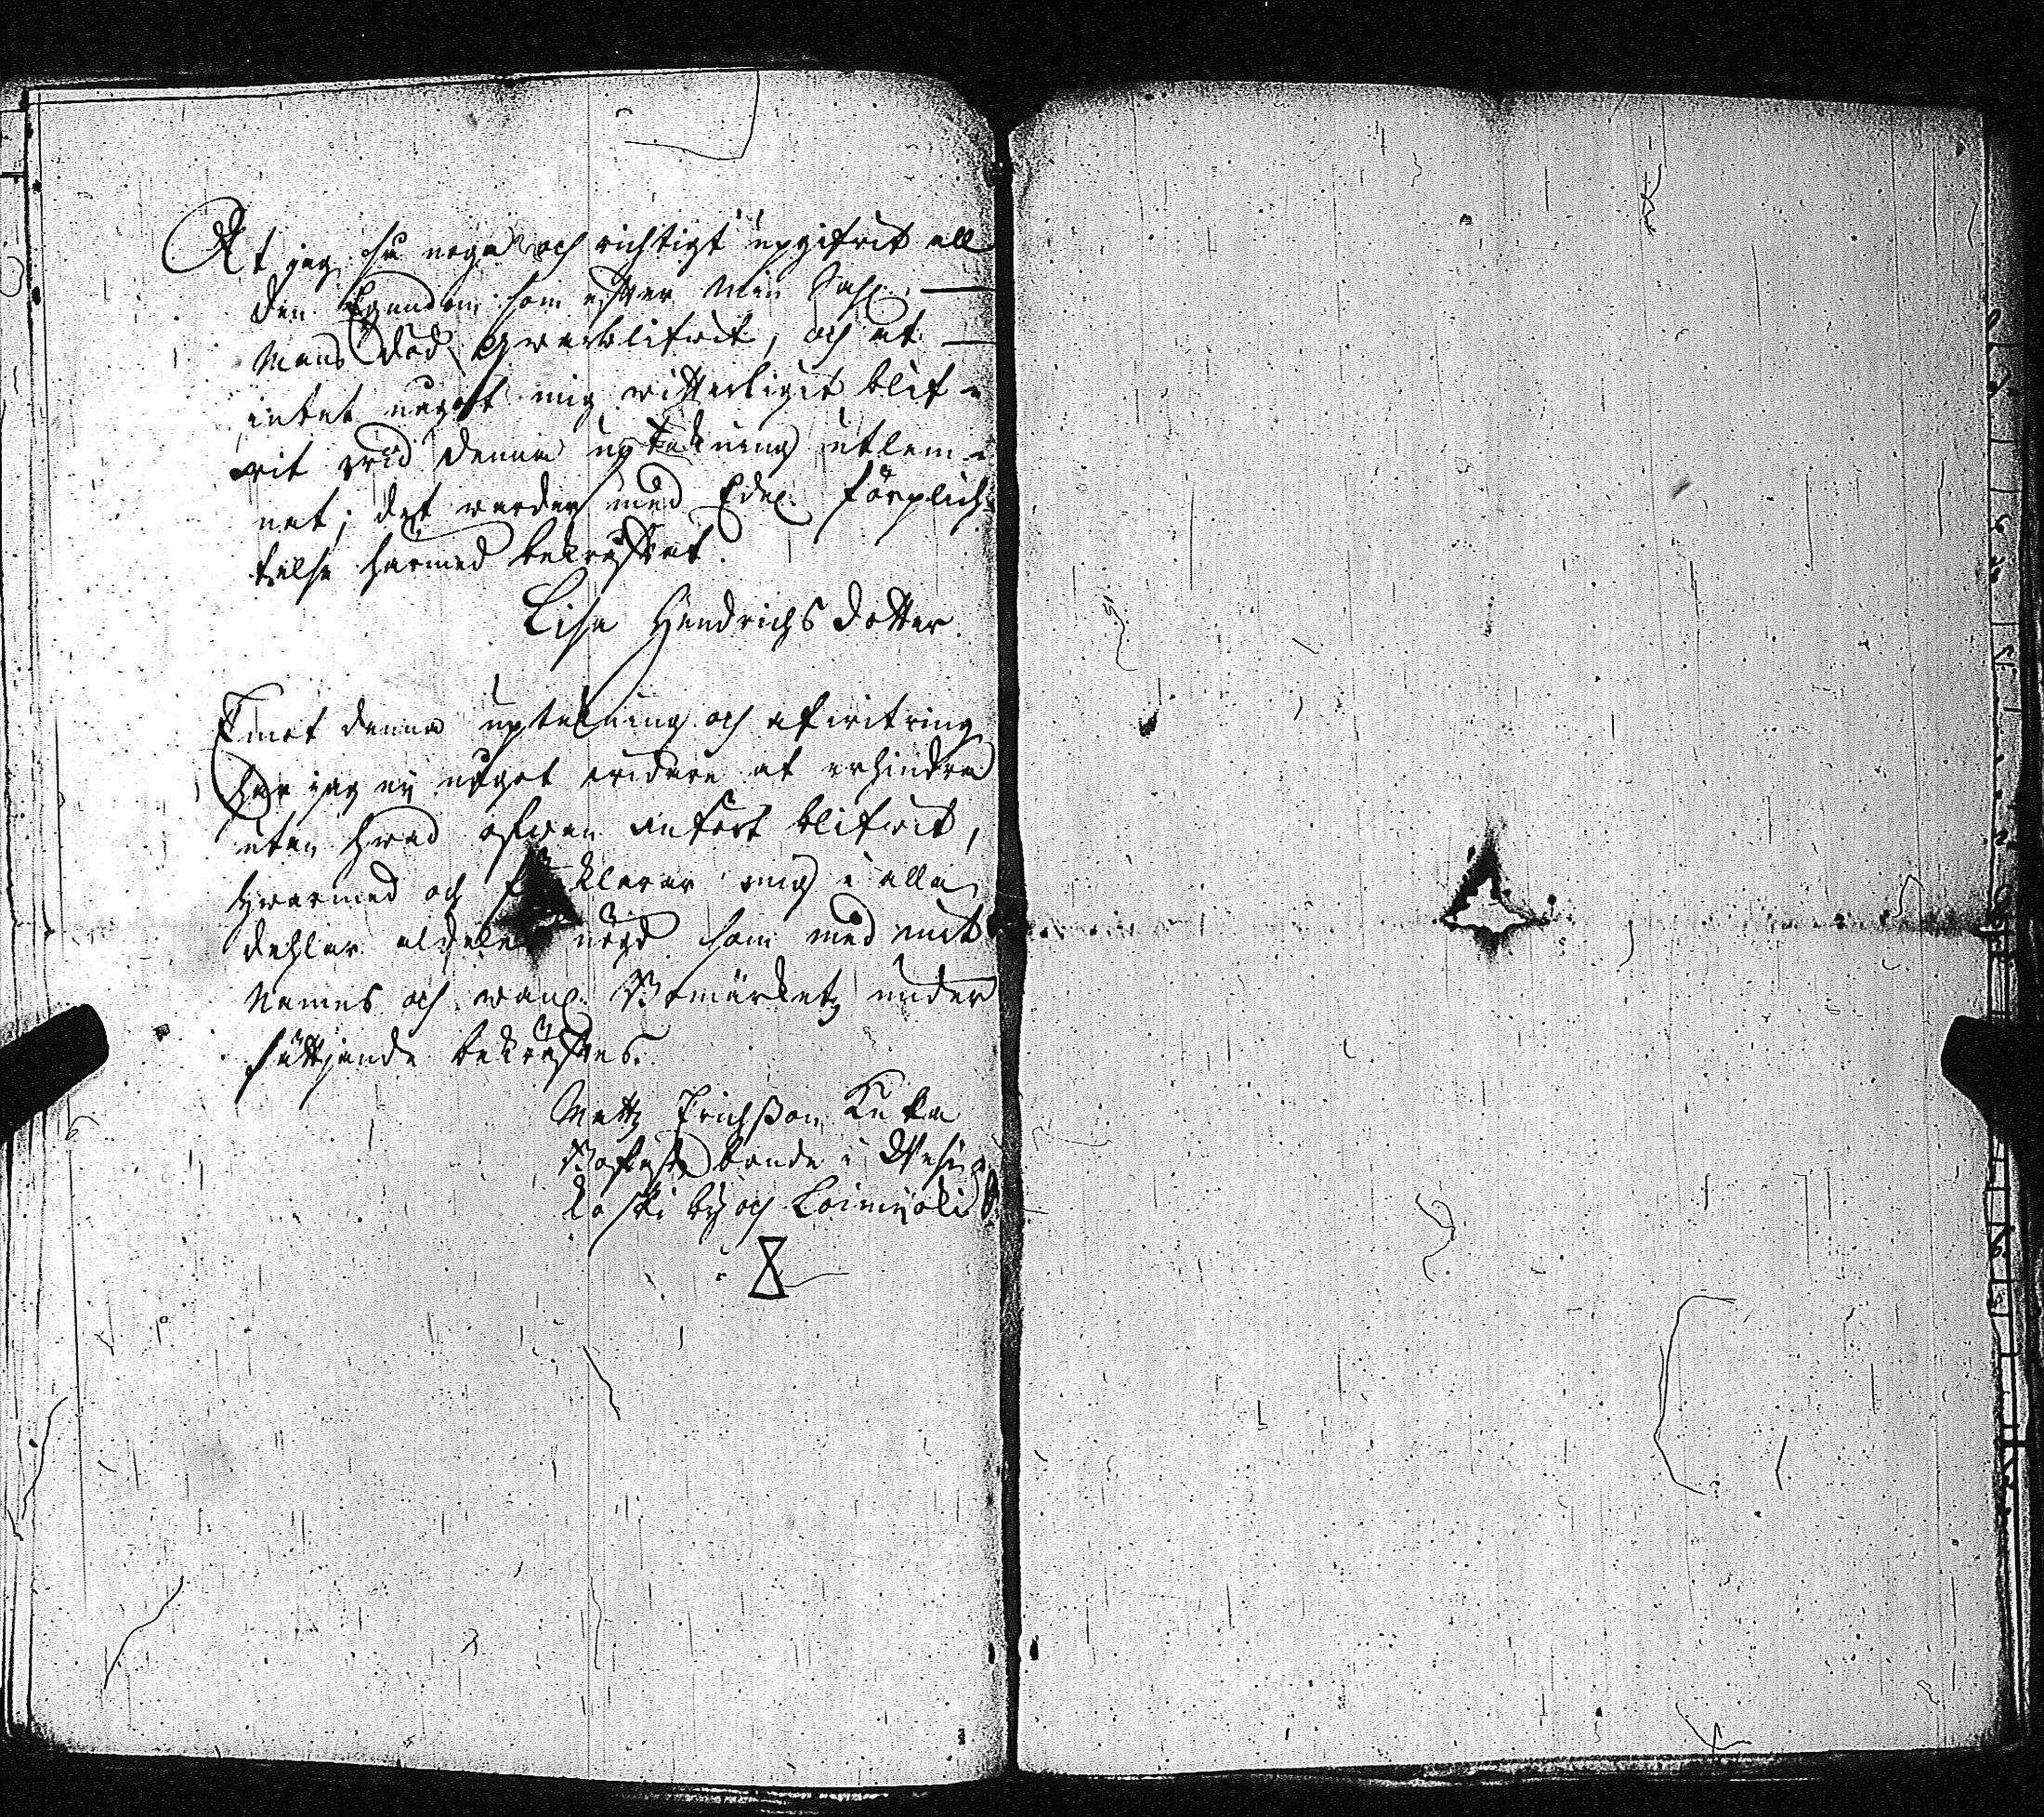 At jag så noga och richtigt upgifwit all
den Egendom som efter min Sahl.
Mans död qwarblifwit, och at
intet något mig witterligit blif-
wit wid denna uptekning utlem-
nat; det warder med Edel. förplich-
telse härmed bekräftat.
Lisa Hendrichs dotter.
Emot denna uptekning och afwitring
har jag ej något widare at erhindra
utan hwad ofwan anfört blifwit,
hwarmed och förklarar mig i alla
dehlar aldeles nögd som med mit
Namns och wanl. Bomärkets under
sättjande bekräftes.
Matz Erichßon Kuka
bonde i Wesi-
koski by och Loimjoki S.